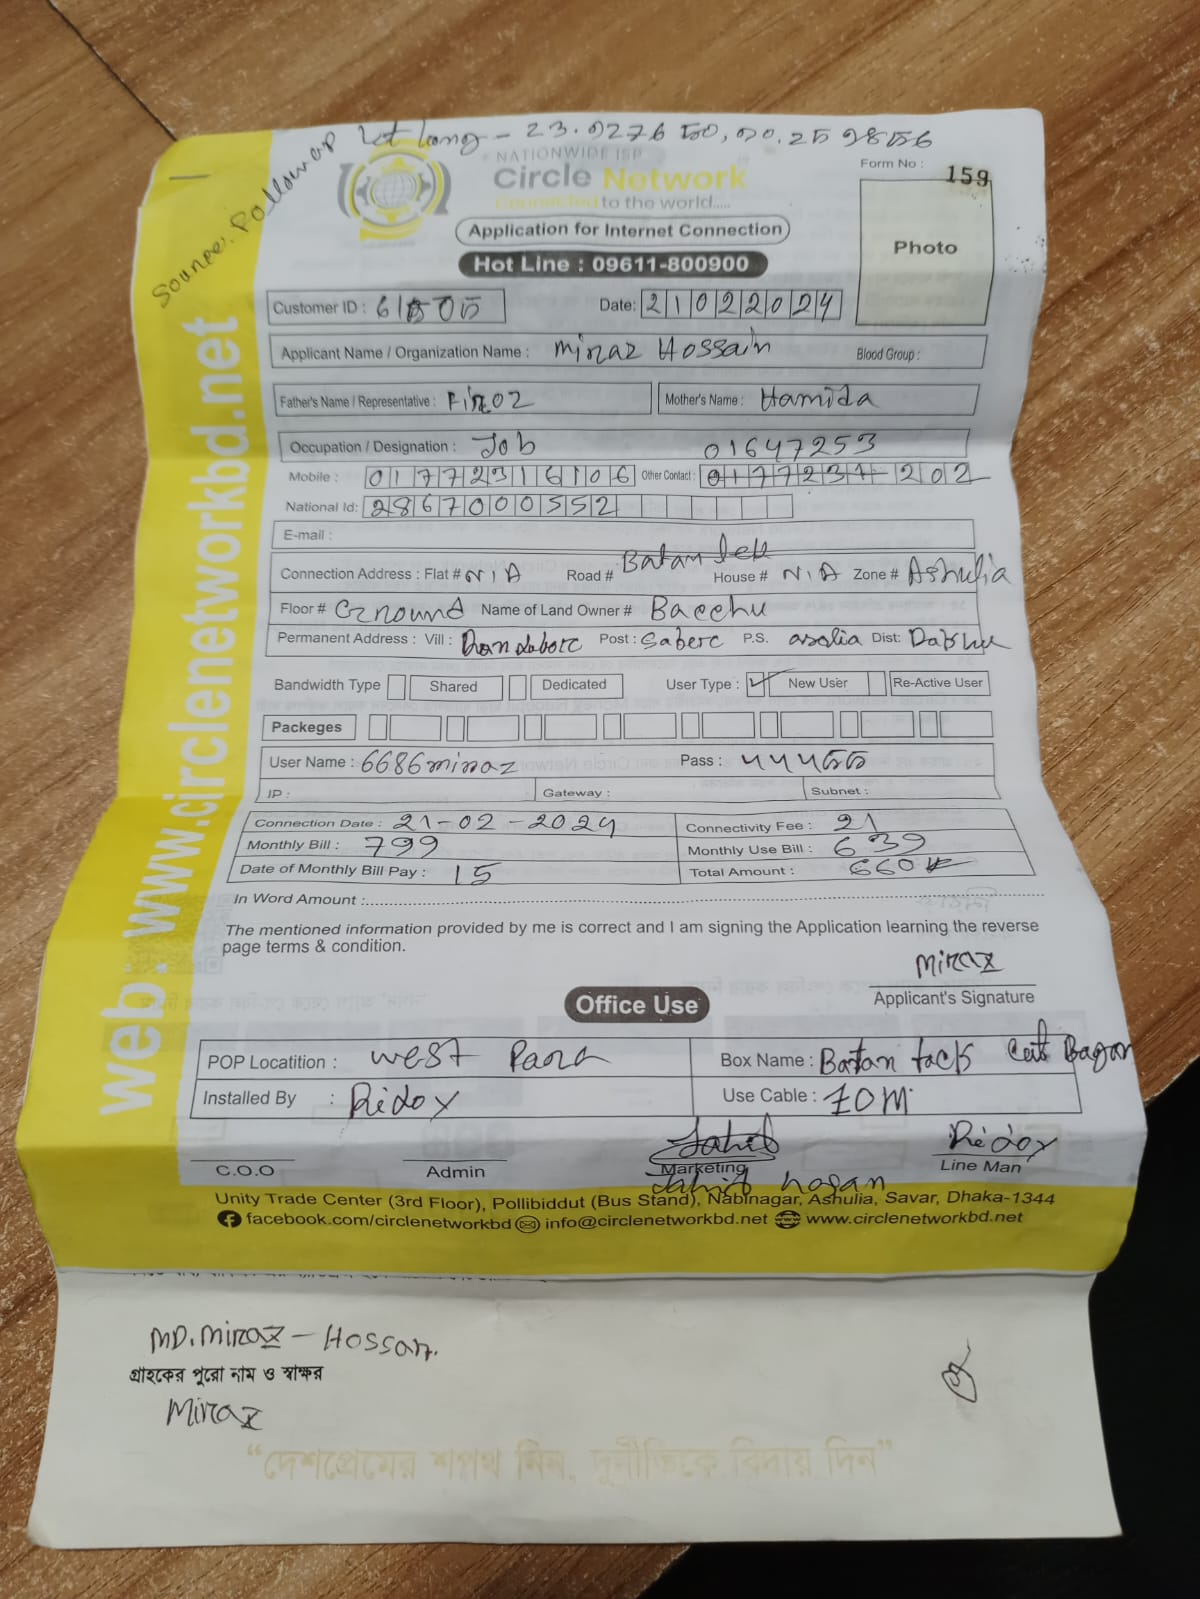 Source: Pollowap Lat Long - 23.9276
NATIONWIDE ISP
Circle Network
Connected to the world.....
Application for Internet Connection
Hot Line : 09611-800900
Form No : 159
Photo
Customer ID :
Date: 21022024
Applicant Name / Organization Name : Miraz Hossain Blood Group :
Father's Name / Representative : Firoz Mother's Name : Hamida
Occupation / Designation : Job 01647253
Mobile : 01772316106 Other Contact : 202
National Id: 2867000552
E-mail :
Connection Address : Flat # N/A Road # Batan tek House # N/A Zone # Ashulia
Floor # Ground Name of Land Owner # Bacchu
Permanent Address : Vill : Post : Saberc P.S. asolia Dist:
Bandwidth Type Shared Dedicated User Type : ✓ New User Re-Active User
Packeges
User Name : 6686miraz Pass :
IP : Gateway : Subnet :
Connection Date : 21-02-2024 Connectivity Fee : 21
Monthly Bill : 799 Monthly Use Bill : 639
Date of Monthly Bill Pay : 15 Total Amount : 660
In Word Amount :
The mentioned information provided by me is correct and I am signing the Application learning the reverse
page terms & condition.
Miraz
Applicant's Signature
Office Use
POP Locatition : West Para Box Name : Batan tack Bagan
Installed By : Ridoy Use Cable : 70M
Ridoy
C.O.O Admin Marketing Line Man
Unity Trade Center (3rd Floor), Pollibiddut (Bus Stand), Nabinagar, Ashulia, Savar, Dhaka-1344
facebook.com/circlenetworkbd info@circlenetworkbd.net www.circlenetworkbd.net
web: www.circlenetworkbd.net
MD. Miraz - Hossan.
গ্রাহকের পুরো নাম ও স্বাক্ষর
Miraz
“দেশপ্রেমের শপথ নিন, দুর্নীতিকে বিদায় দিন”